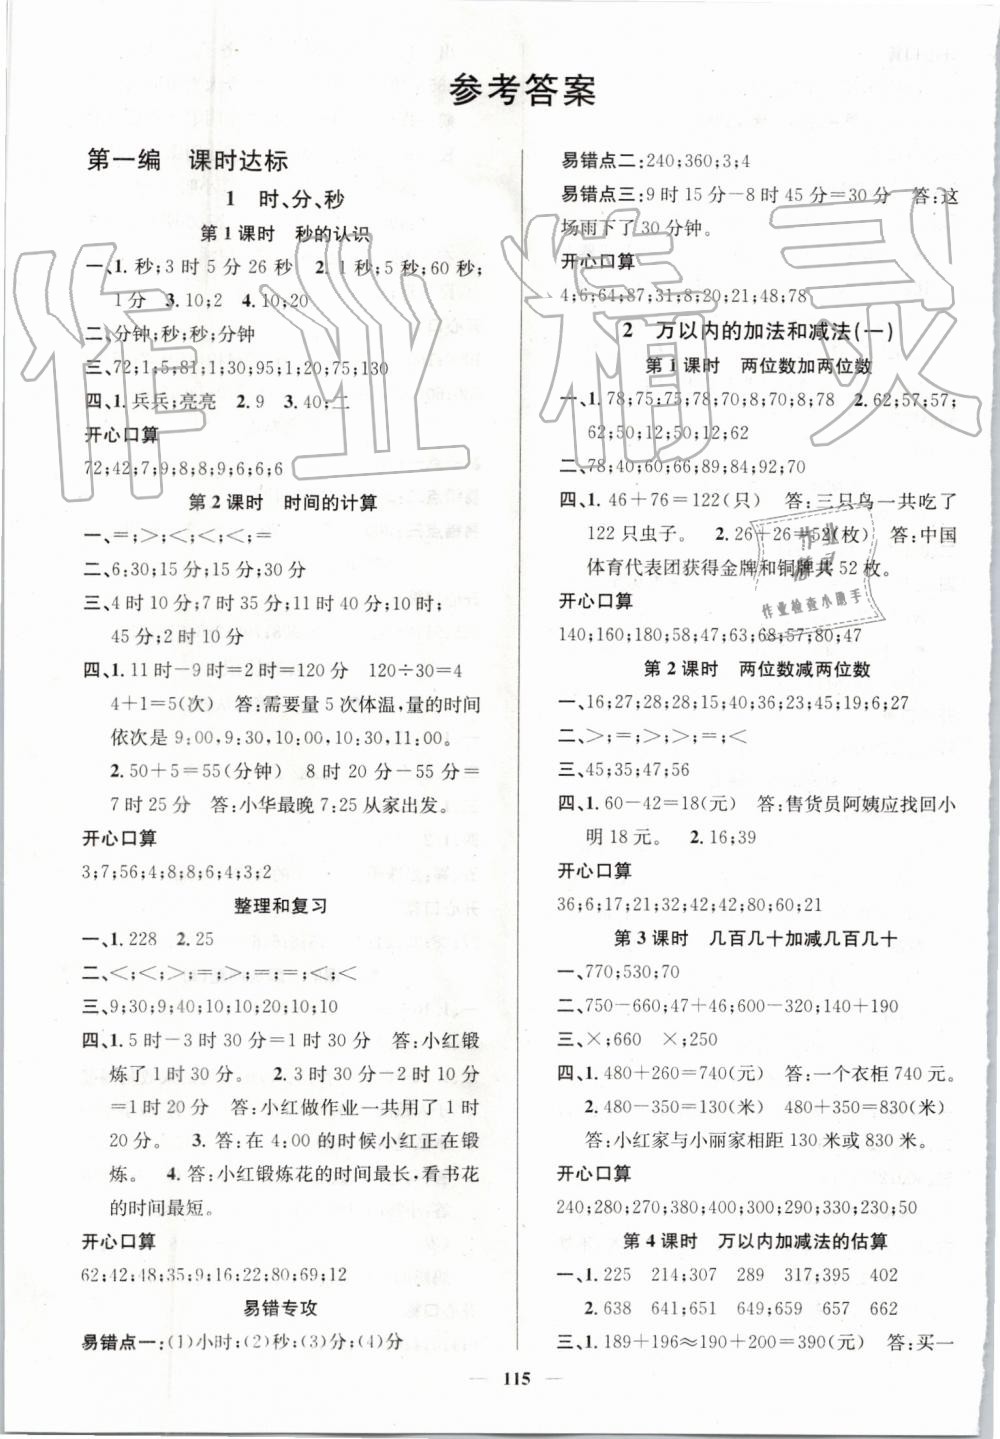 参考答案
第一编 课时达标
1 时、分、秒
第1课时 秒的认识
一、1.秒;3时5分26秒 2.1秒;5秒;60秒;
1分 3.10;2 4.10;20
二、分钟;秒;秒;分钟
三、72;1;5;81;1;30;95;1;20;75;130
四、1.兵兵;亮亮 2.9 3.40;二
开心口算
72;42;7;9;8;8;9;6;6;6
第2课时 时间的计算
一、=;>;<;<;<;=
二、6:30;15;15;30;30
三、4时10分;7时35分;40分;10时;
45分;2时10分
四、1.11时-9时=2时=120分 120÷30=4
4+1=5(次) 答:需要量5次体温,量的时间
依次是9:00,9:30,10:00,10:30,11:00.
2.50+5=55(分钟) 8时20分-55分=
7时25分 答:小华最晚7:25从家出发。
开心口算
3;7;56;4;8;8;6;4;3;2
整理和复习
一、1.228 2.25
二、<;<;>;=;>;=;=;<;<
三、9;30;9;40;10;10;20;10;10
四、1.5时-3时30分=1时30分 答:小红锻
炼了1时30分。 2.3时30分-2时10分
=1时20分 答:小红做作业一共用了1时
20分。 3.答:在4:00的时候小红正在锻
炼。 4.答:小红锻炼花的时间最长,看书花
的时间最短。
开心口算
62;42;48;35;9;16;22;80;69;12
易错专攻
易错点一:(1)小时;(2)秒;(3)分;(4)分
易错点二:240;360;3;4
易错点三:9时15分-8时45分=30分 答:这
场雨下了30分钟。
开心口算
4;6;64;87;31;8;20;21;48;78
2 万以内的加法和减法(一)
第1课时 两位数加两位数
一、1.78;75;75;78;70;8;70;8;78 2.62;57;57;
62;50;12;50;12;62
二、78;40;60;91;88;84;92;70
四、1.46+76=122(只) 答:三只鸟一共吃了
122只虫子。 2.26+26=52(枚) 答:中国
体育代表团获得金牌和铜牌共52枚。
开心口算
140;160;180;58;47;63;68;57;80;47
第2课时 两位数减两位数
一、16;27;28;28;15;40;36;23;45;19;6;27
二、>;=;>;>;=;<
三、45;35;47;56
四、1.60-42=18(元) 答:售货员阿姨应找回小
明18元。 2.16;39
开心口算
36;6;17;21;32;42;42;80;60;21
第3课时 几百几十加减几百几十
一、770;530;70
二、750-660;47+46;600-320;140+190
三、×;660 ×;250
四、1.480+260=740(元) 答:一个衣柜740元。
2.480-350=130(米) 480+350=830(米)
答:小红家与小丽家相距130米或830米。
开心口算
240;280;270;380;120;290;200;230;230;50
第4课时 万以内加减法的估算
一、1.225 214;307 289 317;395 402
2.638 641;651 649;659 607 662
三、1.189+196≈190+200=390(元) 答:买一
115
作业精灵
作业
精灵
作业检查小助手